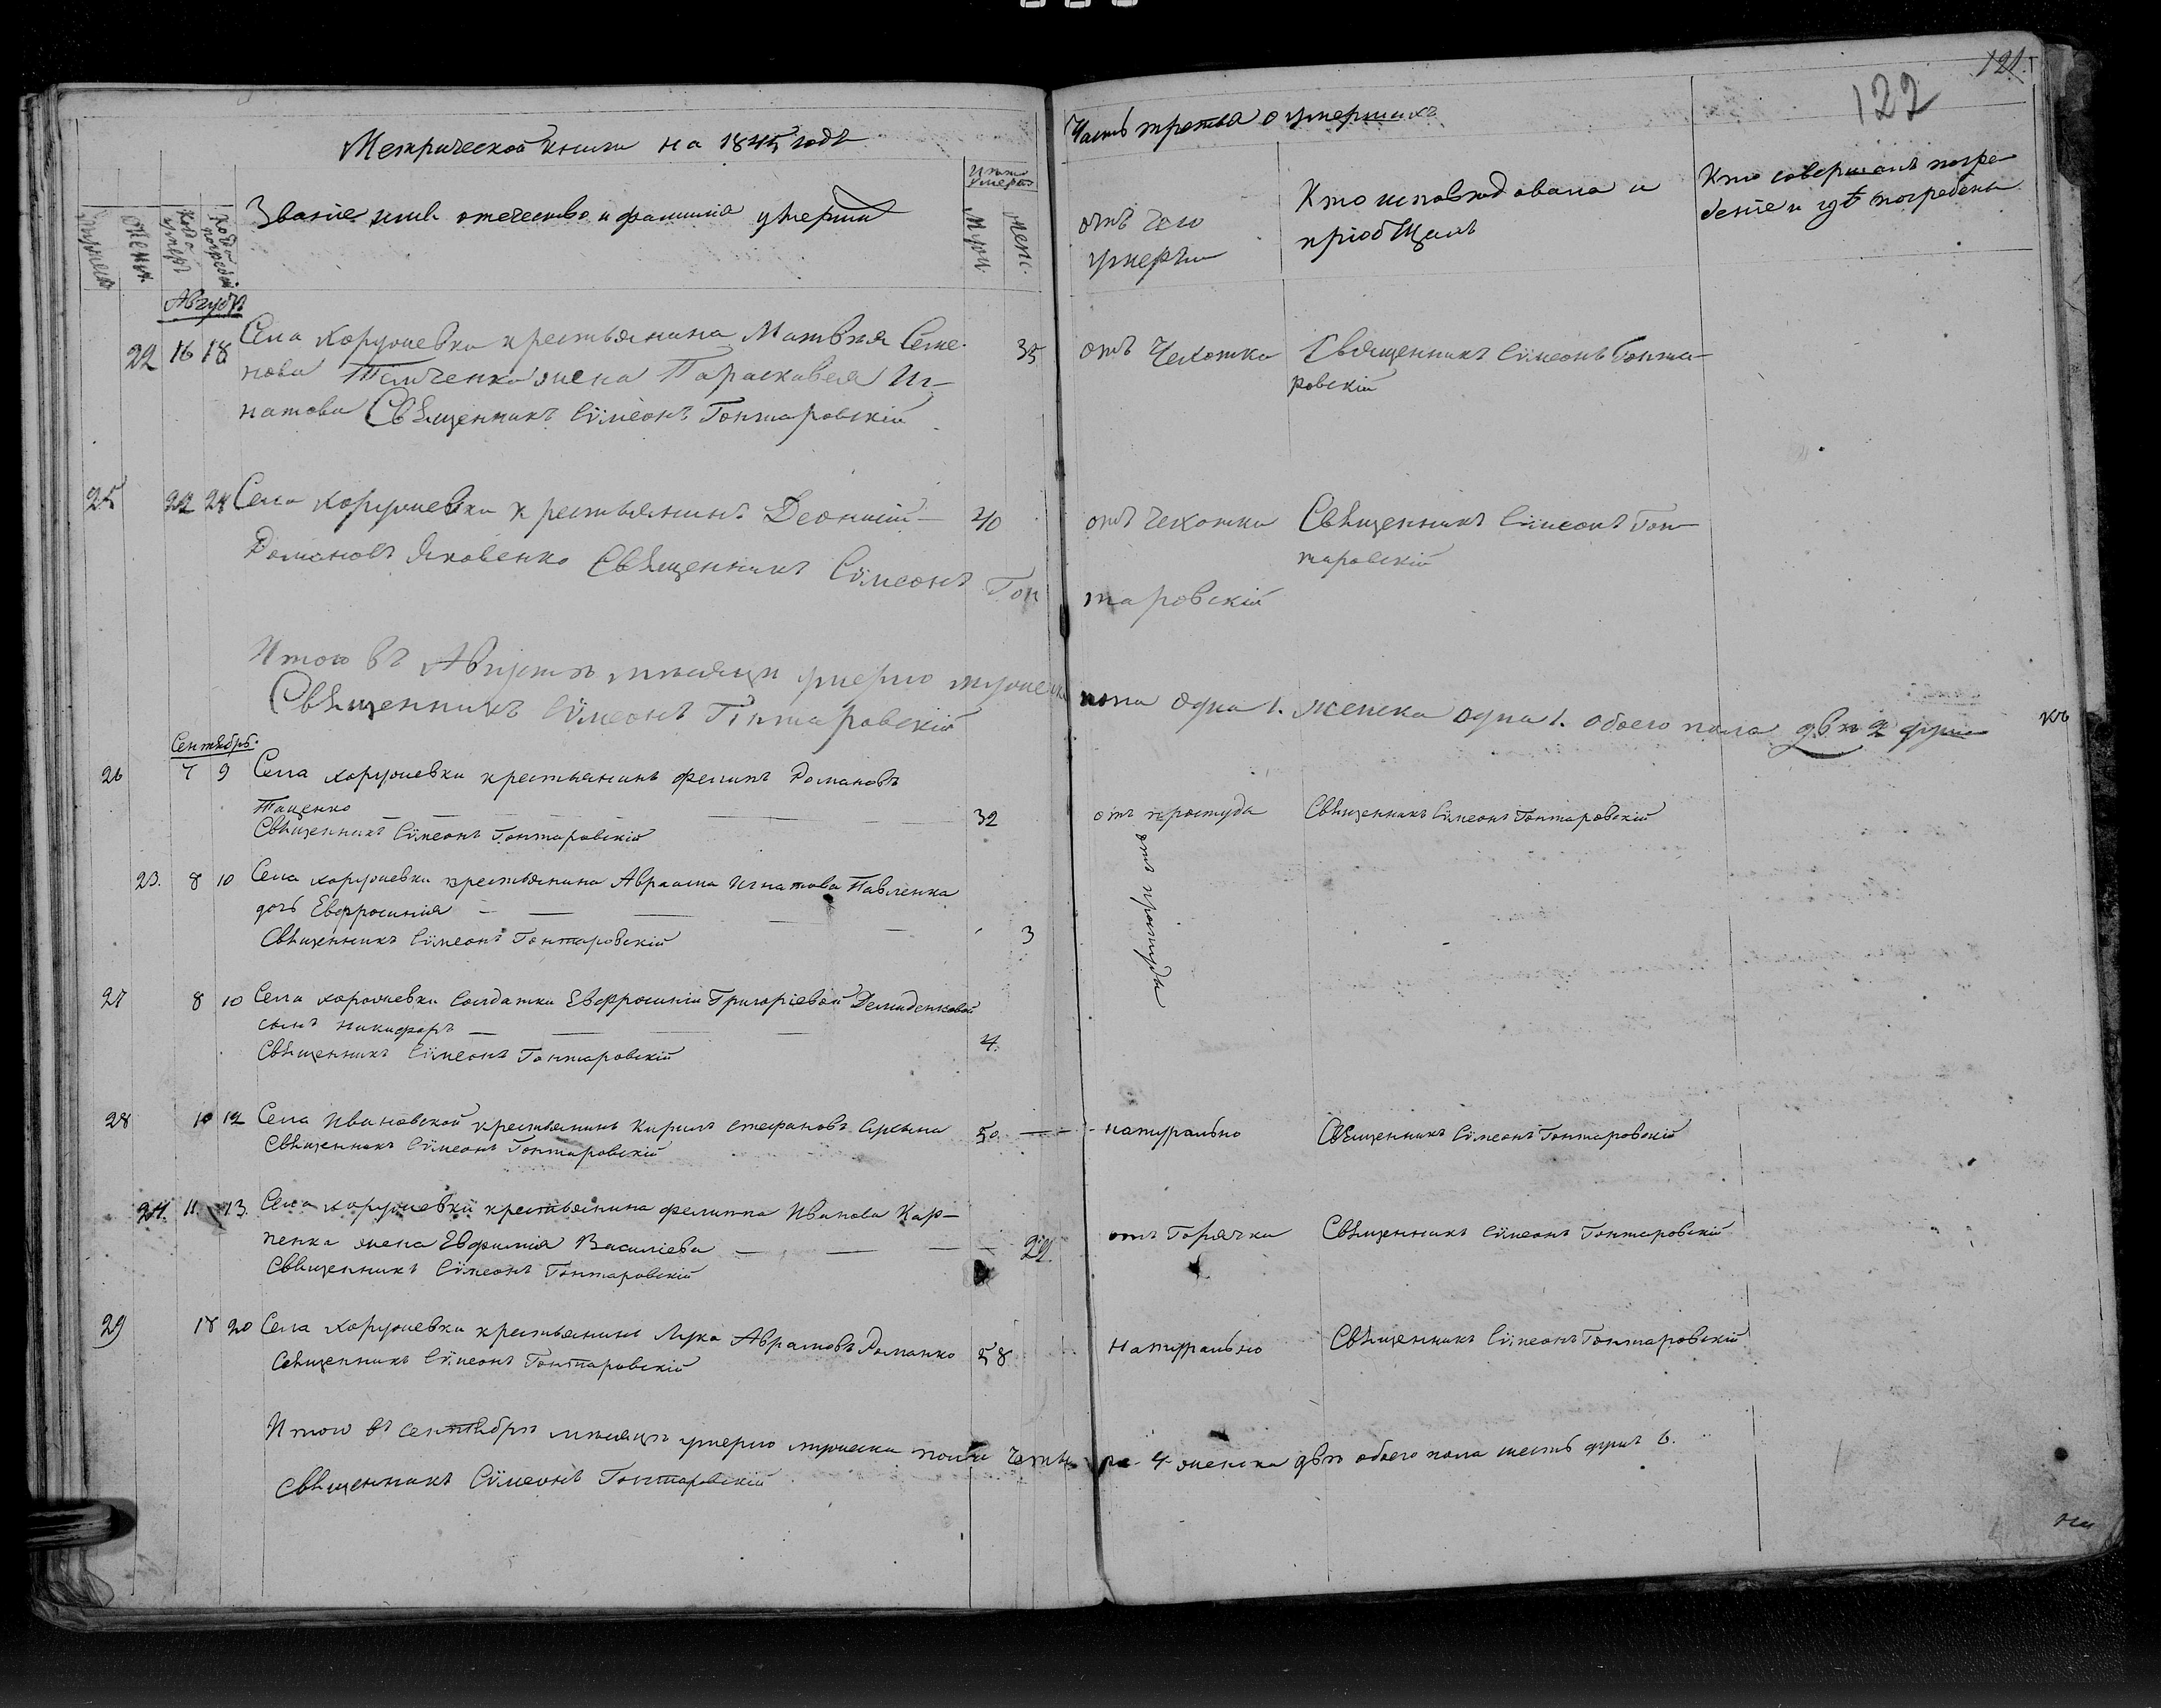 121.
122
Метрической книги на 1845 годъ
Часть третья о умершихъ
Мужеска
Женска
Когда умеръ
Когда погребенъ
Званіе имя отечество и фамилія умерши
Мужи
Женс.
отъ чего
умерли
Кто исповѣдовалъ и
пріобщалъ
Кто совершалъ погре
беніе и гдѣ погребены
Августъ
22 16 18 Села Коружевки крестьянина Матвѣя Семе-
нова жена Параскавея Иг-
натова Священникъ Сѵмеонъ Гонтаровскій
35 отъ Чехотки Священникъ Сѵмеонъ Гонта-
ровскій
25 22 24 Села Коружевки крестьянинъ Леонтій
Романовъ Яковенко Священникъ Сѵмеонъ Гон
таровскій
40 отъ чехотки Священникъ Сѵмеонъ Гон-
таровскій
Итого въ Августѣ мѣсяцѣ умерло мужеска пола одна 1. женска одна 1. обоего пола двѣ 2 души
Священникъ Сѵмеонъ Гонтаровскій
Сентябрь.
26 7 9 Села Коружевки крестьянинъ Филипъ Романовъ
Тащенко
Священникъ Сѵмеонъ Гонтаровскій
32 отъ простуда Священникъ Сѵмеонъ Гонтаровскій
23. 8 10 Села Коружевки крестьянина Авраама Игнатова Павленка
дочь Евфросинія
Священникъ Сѵмеонъ Гонтаровскій
3
отъ простуди
27 8 10 Села Коружевки солдатки Евфросиніи Григоріевой Демиденковой
сынъ Никифоръ
Священникъ Сѵмеонъ Гонтаровскій
4.
28 10 12 Села Ивановской крестьянинъ Кирилъ Стефановъ
Священникъ Сѵмеонъ Гонтаровскій
50 натурально Священникъ Сѵмеонъ Гонтаровскій
24. 11. 13. Села Коружевки крестьянина Филиппа Иванова Кар-
пенка жена Евфимія Василіева
Священникъ Сѵмеонъ Гонтаровскій
22. отъ Горячки Священникъ Сѵмеонъ Гонтаровскій
29 18 20 Села Коружевки крестьянинъ Лука Аврамовъ Романко
Священникъ Сѵмеонъ Гонтаровскій
58 натурально Священникъ Сѵмеонъ Гонтаровскій
Итого въ сентябрѣ мѣсяцѣ умерло мужеска пола четыре 4 женска двѣ обоего пола шесть душъ 6.
Священникъ Сѵмеонъ Гонтаровскій